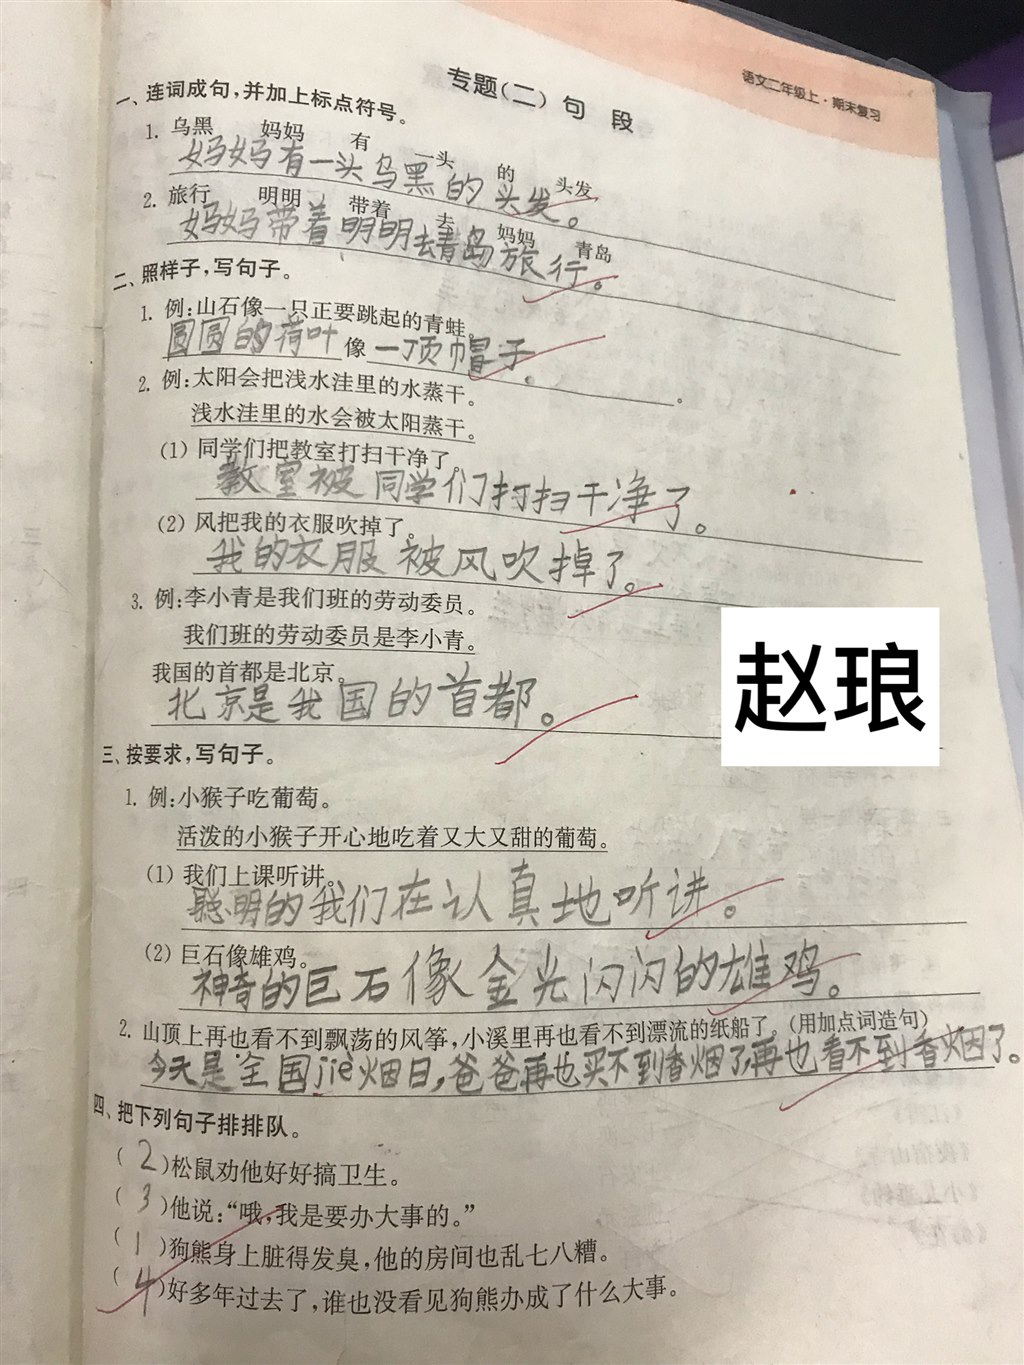 语文二年级上·期末复习
专题(二) 句 段
一、连词成句,并加上标点符号。
1. 乌黑 妈妈 有 一头 的 头发
妈妈有一头乌黑的头发。
2. 旅行 明明 带着 去 妈妈 青岛
妈妈带着明明去青岛旅行。
二、照样子,写句子。
1. 例:山石像一只正要跳起的青蛙。
圆圆的荷叶像一顶帽子。。
2. 例:太阳会把浅水洼里的水蒸干。
浅水洼里的水会被太阳蒸干。
(1) 同学们把教室打扫干净了。
教室被同学们打扫干净了。
(2) 风把我的衣服吹掉了。
我的衣服被风吹掉了。
3. 例:李小青是我们班的劳动委员。
我们班的劳动委员是李小青。
我国的首都是北京。
北京是我国的首都。
赵琅
三、按要求,写句子。
1. 例:小猴子吃葡萄。
活泼的小猴子开心地吃着又大又甜的葡萄。
(1) 我们上课听讲。
聪明的我们在认真地听讲。
(2) 巨石像雄鸡。
神奇的巨石像金光闪闪的雄鸡。
2. 山顶上再也看不到飘荡的风筝,小溪里再也看不到漂流的纸船了。(用加点词造句)
今天是全国jiè烟日,爸爸再也买不到香烟了,再也看不到香烟了。
四、把下列句子排排队。
(2)松鼠劝他好好搞卫生。
(3)他说:“哦,我是要办大事的。”
(1)狗熊身上脏得发臭,他的房间也乱七八糟。
(4)好多年过去了,谁也没看见狗熊办成了什么大事。